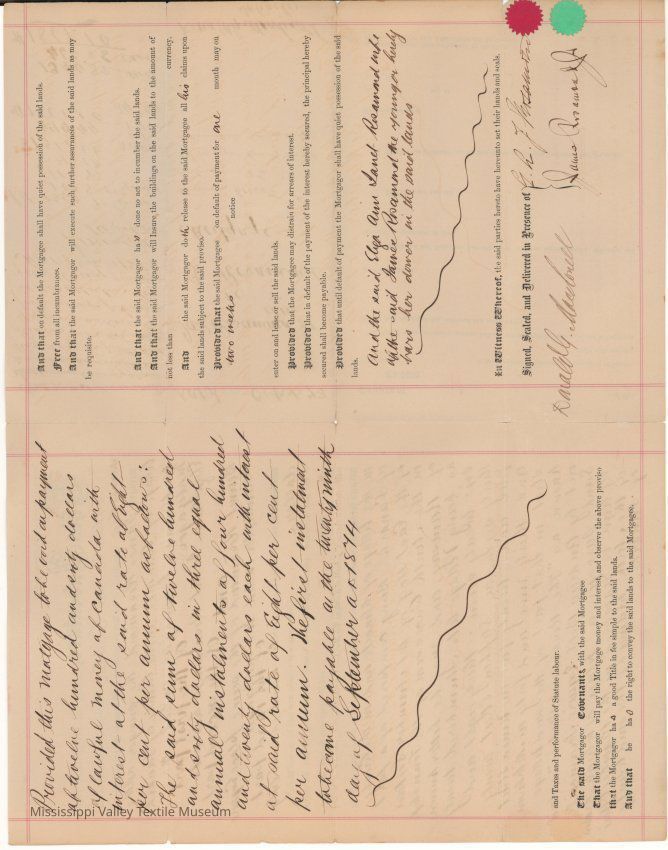 Provided this mortgage to be void on payment
of twelve hundred and sixty dollars
of lawful money of Canada with
interest at the said rate of Eight
per cent per annum as follows:
The said sum of twelve hundred
and sixty dollars in three equal
annual instalments of four hundred
and twenty dollars each with interest
at said rate of Eight per cent
per annum. The first instalment
to become payable on the twenty ninth
day of September AD 1874
and Taxes and performance of Statute labour.
The said Mortgagor Covenants with the said Mortgagee
That the Mortgagor will pay the Mortgage money and interest, and observe the above proviso
that the Mortgagor ha s a good Title in fee simple to the said lands.
And that he ha s the right to convey the said lands to the said Mortgagee.
And that on default the Mortgagee shall have quiet possession of the said lands.
Free from all incumbrances.
And that the said Mortgagor will execute such further assurances of the said lands as may
be requisite.
And that the said Mortgagor ha s done no act to incumber the said lands.
And that the said Mortgagor will Insure the buildings on the said lands to the amount of
not less than currency,
And the said Mortgagor doth release to the said Mortgagee all his claims upon
the said lands subject to the said proviso.
Provided that the said Mortgagee on default of payment for one month may on
two weeks notice
enter on and lease or sell the said lands.
Provided that the Mortgagee may distrain for arrears of interest.
Provided that in default of the payment of the interest hereby secured, the principal hereby
secured shall become payable.
Provided that until default of payment the Mortgagor shall have quiet possession of the said
lands.
And the said Eliza Ann Janet Rosamond wife
of the said James Rosamond the younger hereby
bars her dower in the said lands
In Witness Whereof, the said parties hereto have hereunto set their hands and seals.
Signed, Sealed, and Delivered in Presence of
James Rosamond Jr
Mississippi Valley Textile Museum